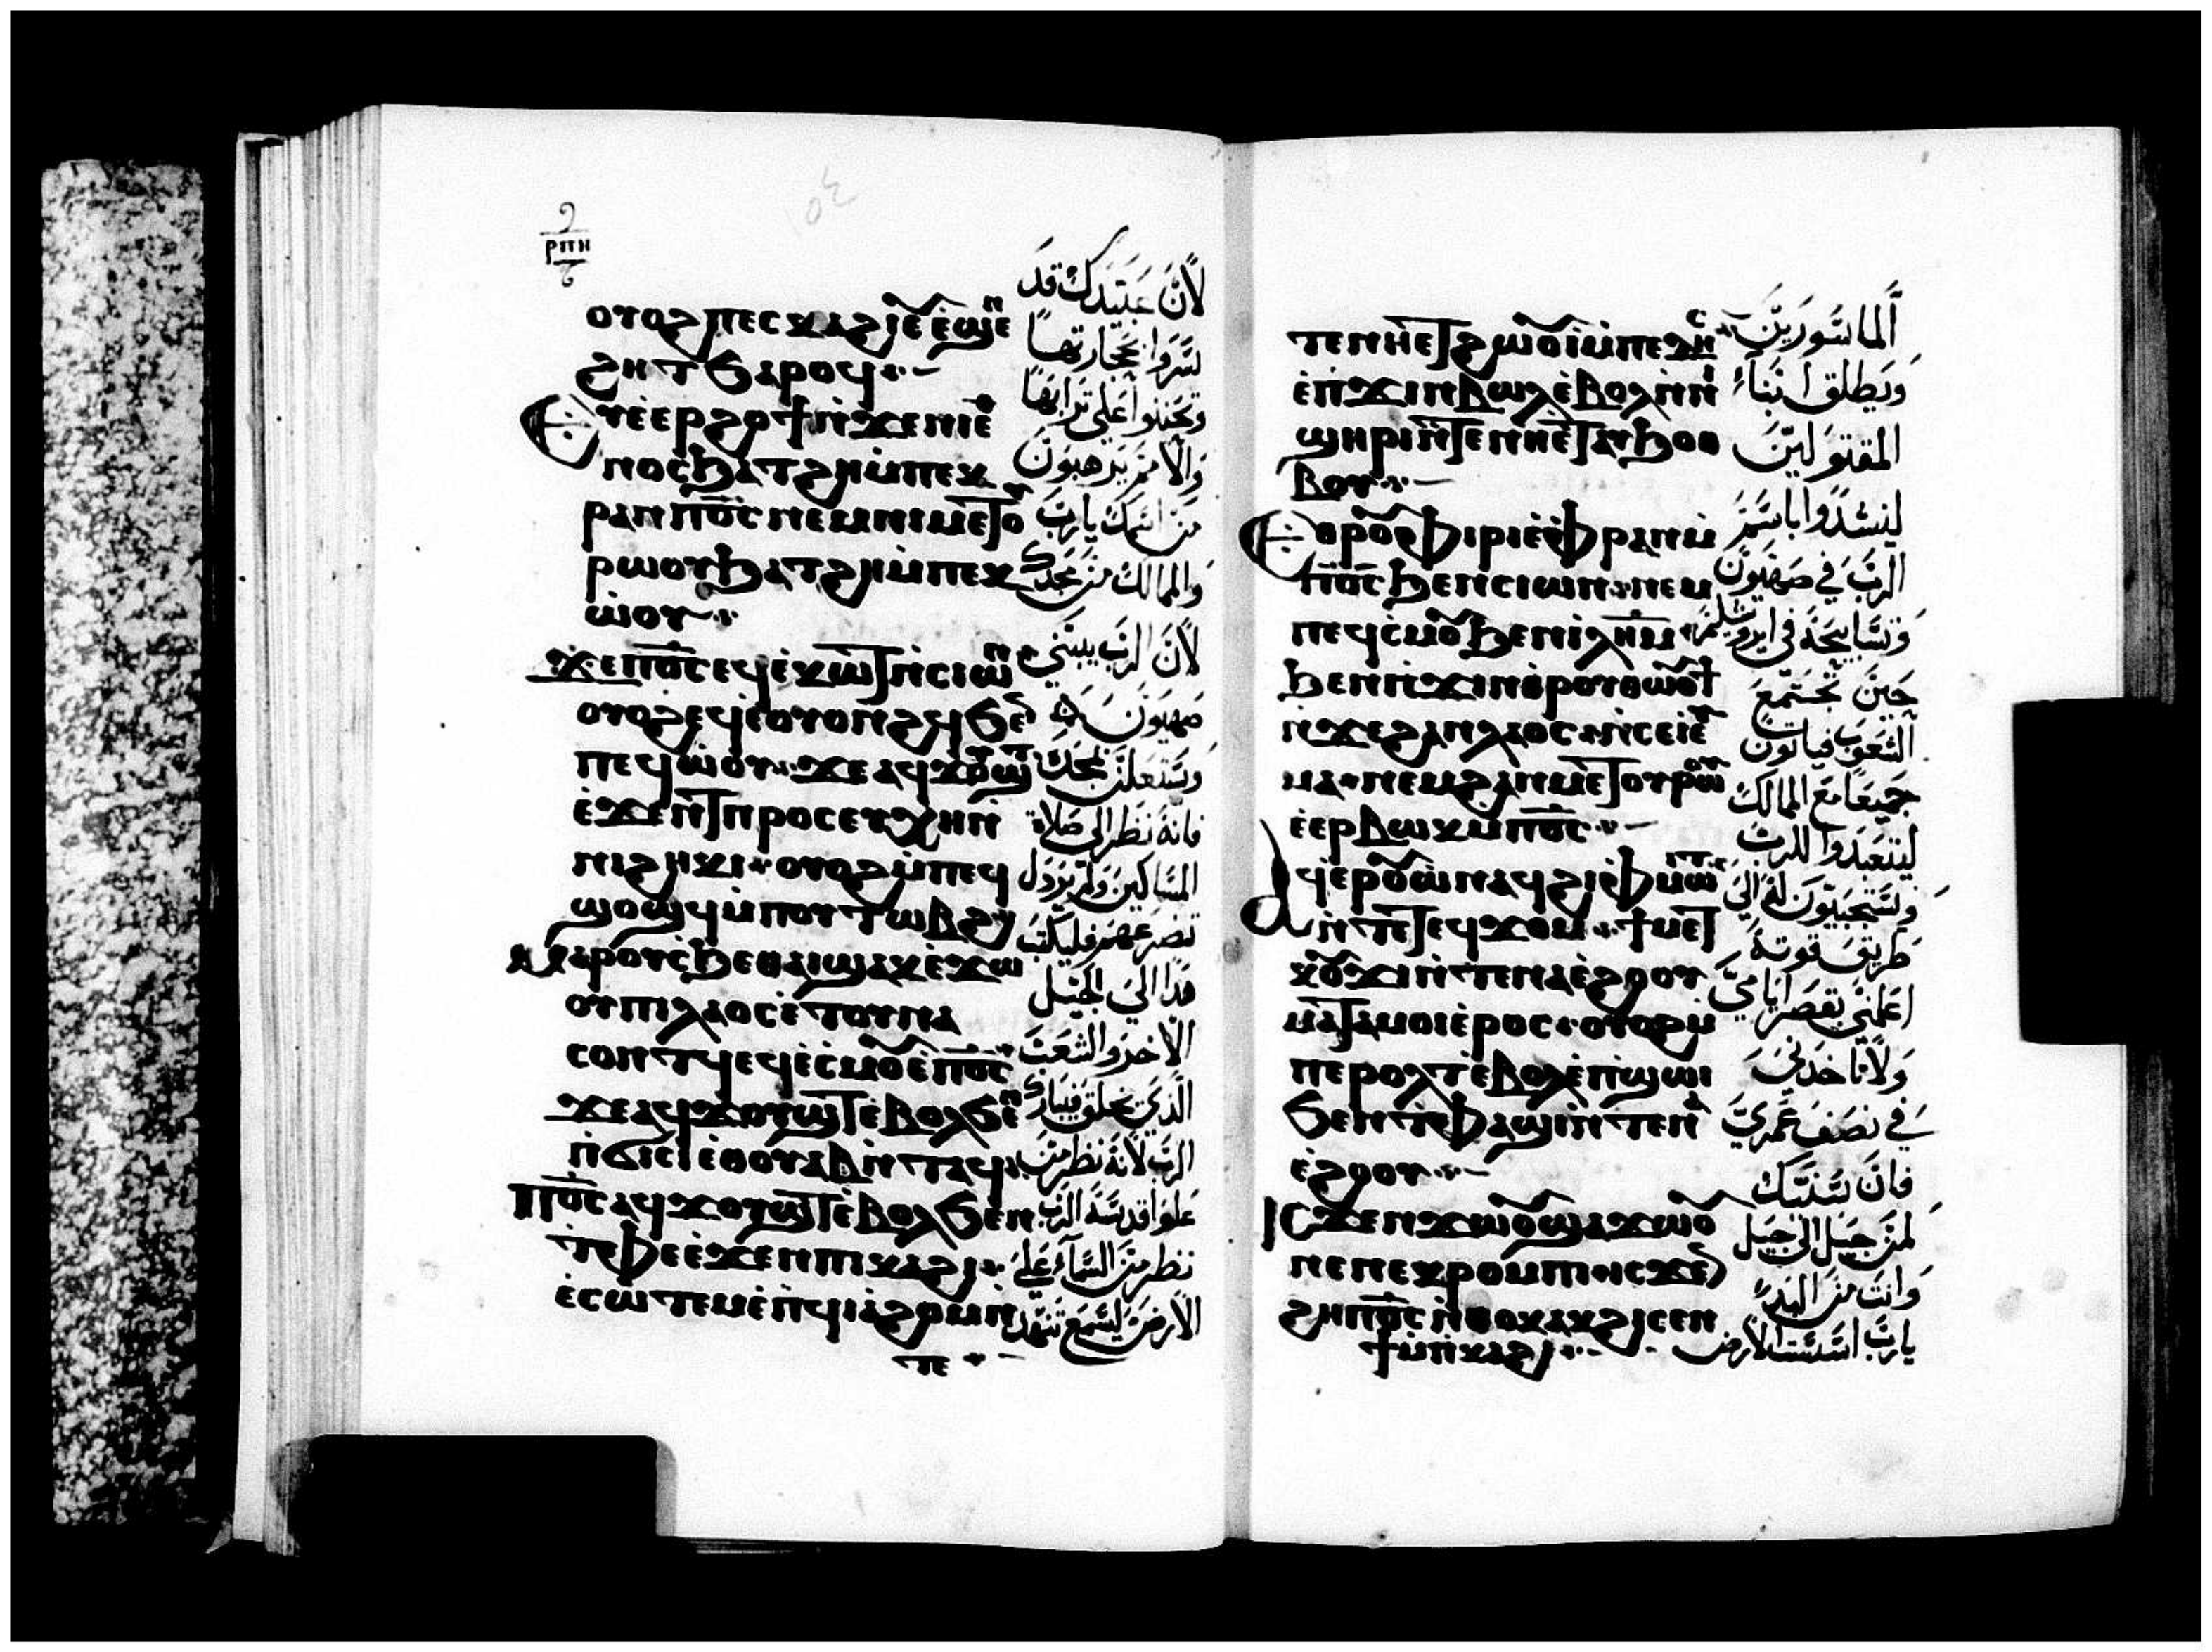 ⲣⲡⲏ
ⲟⲩⲟϩ ⲡⲉⲥⲕⲁϩⲓ
ϧⲁⲣⲟϥ
ⲉⲩⲉⲉⲣϩⲟϯ ⲛ̇ϫⲉⲛⲓⲉ
ⲑⲛⲟⲥ ϧⲁⲧϩⲏ ⲙ̇ⲡⲉⲕ
ⲣⲁⲛ ⲡ̅ⲟ̅ⲥ̅ ⲛⲉⲙ ⲛⲓⲙⲉⲧⲟⲩ
ⲣⲱⲟⲩ ϧⲁⲧϩⲏ ⲙ̇ⲡⲉⲕ
ⲱ̇ⲟⲩ
ϫⲉ ⲡ̅ⲟ̅ⲥ̅ ⲉϥⲉ̇ⲕⲱⲧ ⲛ̇ⲥⲓⲱⲛ
ⲟⲩⲟϩ ⲉϥⲉ̇ⲟⲩⲟⲛϩϥ ϧⲉⲛ
ⲡⲉϥⲱ̇ⲟⲩ ϫⲉ ⲁϥϫⲟⲩϣⲧ
ⲉ̇ϫⲉⲛ ϯⲡⲣⲟⲥⲉⲩⲭⲏ ⲛ̇
ⲛⲓϩⲏⲕⲓ ⲟⲩⲟϩ ⲙ̇ⲡⲉϥ
ϣⲟϣϥ ⲙ̇ⲡⲟⲩⲧⲱⲃϩ
ⲙⲁⲣⲟⲩⲥϧⲉ ⲑⲁⲓ ϣⲁ ⲕⲉϫⲱ
ⲟⲩ ⲡⲓⲗⲁⲟⲥ ⲉ̇ⲧⲟⲩⲛⲁ
ⲥⲟⲛⲧϥ ⲉϥⲉ̇ⲥⲙⲟⲩ ⲉ̇ⲡ̅ⲟ̅ⲥ̅
ϫⲉ ⲁϥϫⲟⲩϣⲧ ⲉ̇ⲃⲟⲗ ϧⲉⲛ
ⲡ̇ϭⲓⲥⲓ ⲉ̇ⲑⲟⲩⲁⲃ ⲛ̇ⲧⲁϥ
ⲡ̅ⲟ̅ⲥ̅ ⲁϥϫⲟⲩϣⲧ ⲉ̇ⲃⲟⲗ ϧⲉⲛ
ⲧ̇ⲫⲉ ⲉ̇ϫⲉⲛ ⲡⲓⲕⲁϩⲓ
ⲉ̇ⲥⲱⲧⲉⲙ ⲉ̇ⲡ̇ϥⲓⲁ̇ϩⲟⲙ ⲛ̇
ⲧⲉ
لأن عبيدك قد
سروا بحجارتها
وتحننوا على ترابها
والامم يرهبون
من اسمك يارب
والممالك من مجدك
لأن الرب يبني
صهيون
ويستعلن بمجده
فانه نظر الى صلاة
المساكين ولم يردل
تضرعهم فليكتب
هذا الى الجيل
الآخر والشعب
الذي يخلق يبارك
الرب لأنه نظر من
علو اقدسه الرب
نظر من السماء على
الأرض ليسمع تنهد
ⲧⲉ ⲛⲏⲉⲧⲥⲱⲛϩ
ⲉ̇ⲡ̇ϫⲓⲛⲃⲱⲗ ⲉ̇ⲃⲟⲗ ⲛ̇ⲛⲓ
ϣⲏⲣⲓ ⲛ̇ⲧⲉ ⲛⲏⲉⲧⲁⲩϧⲟⲑ
ⲃⲟⲩ
ⲉⲑⲣⲟⲩⲫⲓⲣⲓ ⲉ̇ⲫⲣⲁⲛ ⲙ̇
ⲡ̅ⲟ̅ⲥ̅ ϧⲉⲛ ⲥⲓⲱⲛ ⲛⲉⲙ
ⲡⲉϥⲥ̇ⲙⲟⲩ ϧⲉⲛ ⲓⲗ̅ⲏ̅ⲙ̅
ϧⲉⲛ ⲡ̇ϫⲓⲛⲑⲣⲟⲩⲑⲱⲟⲩϯ
ⲛ̇ϫⲉ ϩⲁⲛⲗⲁⲟⲥ
ⲙⲁ ⲛⲉⲙ ϩⲁⲛⲙⲉⲧⲟⲩⲣⲱⲟⲩ
ⲉ̇ⲉⲣⲃⲱⲕ ⲙ̇ⲡ̅ⲟ̅ⲥ̅
ⲁϥⲉⲣⲟⲩⲱ̇ ⲛⲁϥ ϩⲓ ⲫⲙⲱⲓⲧ
ⲛ̇ⲧⲉ ⲧⲉϥϫⲟⲙ ϯⲙⲉⲧ
ⲕⲟⲩϫⲓ ⲛ̇ⲧⲉ ⲛⲁⲉ̇ϩⲟⲟⲩ
ⲙⲁⲧⲁⲙⲟⲓ ⲉ̇ⲣⲟⲥ ⲟⲩⲟϩ ⲙ̇
ⲡⲉⲣⲟⲗⲧ ⲉ̇ⲃⲟⲗ ⲉ̇ⲡ̇ϣⲱⲓ
ϧⲉⲛ ⲧ̇ⲫⲁϣⲓ ⲛ̇ⲧⲉ ⲛⲁ
ⲉ̇ϩⲟⲟⲩ
ⲓⲥϫⲉⲛ ϫⲱⲟⲩ ϣⲁ ϫⲱⲟⲩ
ⲛⲉ ⲛⲉⲕⲣⲟⲙⲡⲓ ⲓⲥϫⲉⲛ
ϩⲏ ⲡ̅ⲟ̅ⲥ̅ ⲛ̇ⲑⲟⲕ ⲁⲕϩⲓⲥⲉⲛ
ϯ ⲙ̇ⲡ̇ⲕⲁϩⲓ
الماسورين
ويطلق ابناء
المقتولين
لينشدوا باسم
الرب في صهيون
وتسابيحه في ايروشليم
حين تجتمع
الشعوب فياتون
جميعا مع الممالك
ليتعبدوا للرب
ويستجيبون له الي
طريق قوته
اعلمني بقصر ايامي
ولا تاخدني
في نصف عمري
فان سنتك
لمن جيل الى جيل
وانت من البدء
يارب اسست الأرض